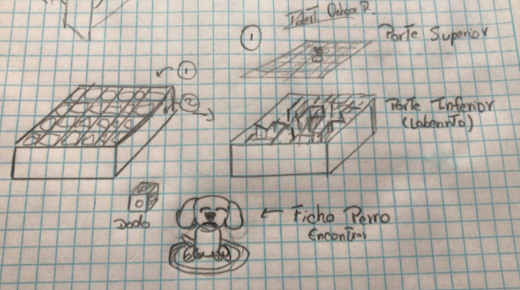 ①
Parte Superior
①
②
Parte Inferior
(Laberinto)
Dado
← Ficha Perro
Encontrar